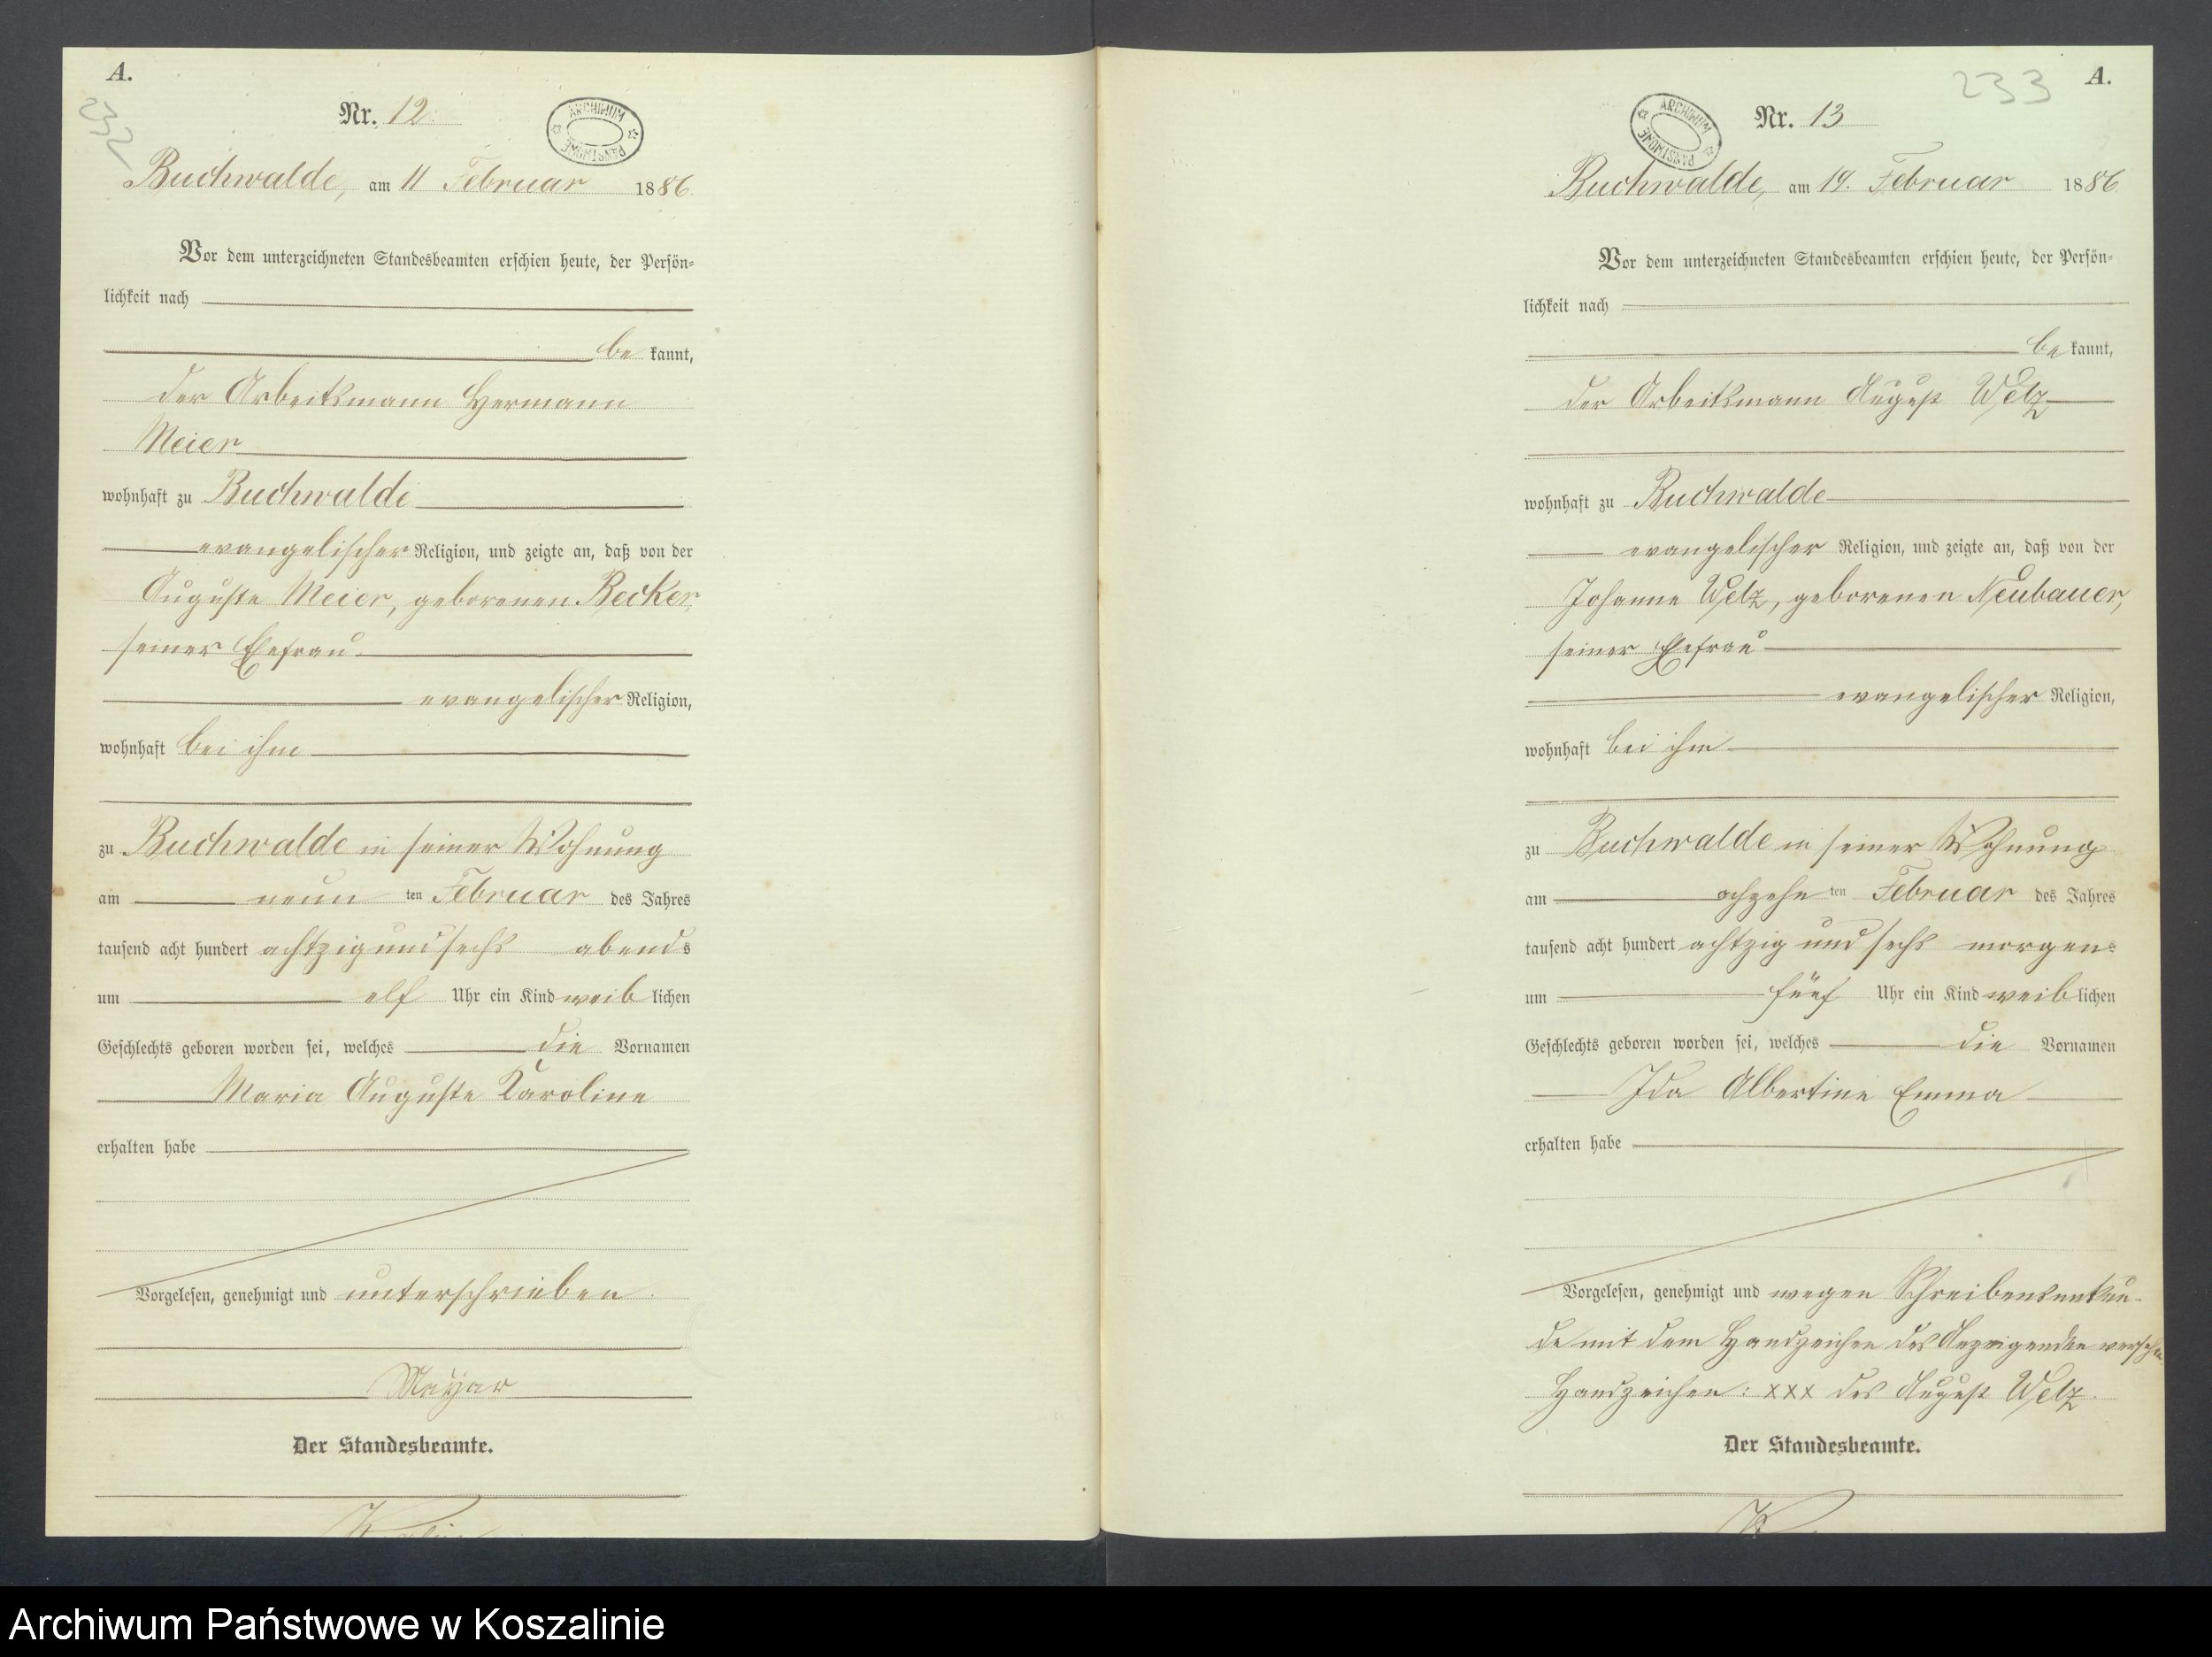 A.
232
Nr. 12.
ARCHIWUM PAŃSTWOWE
Buchwalde, am 11 Februar 1886.
Vor dem unterzeichneten Standesbeamten erschien heute, der Persön-
lichkeit nach
be kannt,
der Arbeitsmann Hermann
Meier
wohnhaft zu Buchwalde
evangelischer Religion, und zeigte an, daß von der
Auguste Meier, geborenen Becker,
seiner Ehefrau
evangelischer Religion,
wohnhaft bei ihm
zu Buchwalde in seiner Wohnung
am neun ten Februar des Jahres
tausend acht hundert achtzig und sechs abends
um elf Uhr ein Kind weib lichen
Geschlechts geboren worden sei, welches die Vornamen
Maria Auguste Karoline
erhalten habe
Vorgelesen, genehmigt und unterschrieben.
Der Standesbeamte.
233
A.
Nr. 13
ARCHIWUM PAŃSTWOWE
Buchwalde, am 19. Februar 1886
Vor dem unterzeichneten Standesbeamten erschien heute, der Persön-
lichkeit nach
be kannt,
der Arbeitsmann August Welz
wohnhaft zu Buchwalde
evangelischer Religion, und zeigte an, daß von der
Johanne Welz, geborenen Neubauer,
seiner Ehefrau
evangelischer Religion,
wohnhaft bei ihm
zu Buchwalde in seiner Wohnung
am achzehn ten Februar des Jahres
tausend acht hundert achtzig und sechs morgens
um fünf Uhr ein Kind weib lichen
Geschlechts geboren worden sei, welches die Vornamen
Ida Albertine Emma
erhalten habe
Vorgelesen, genehmigt und wegen Schreibensunkun-
de mit dem Handzeichen des Anzeigenden versehen
Handzeichen: xxx des August Welz.
Der Standesbeamte.
Archiwum Państwowe w Koszalinie